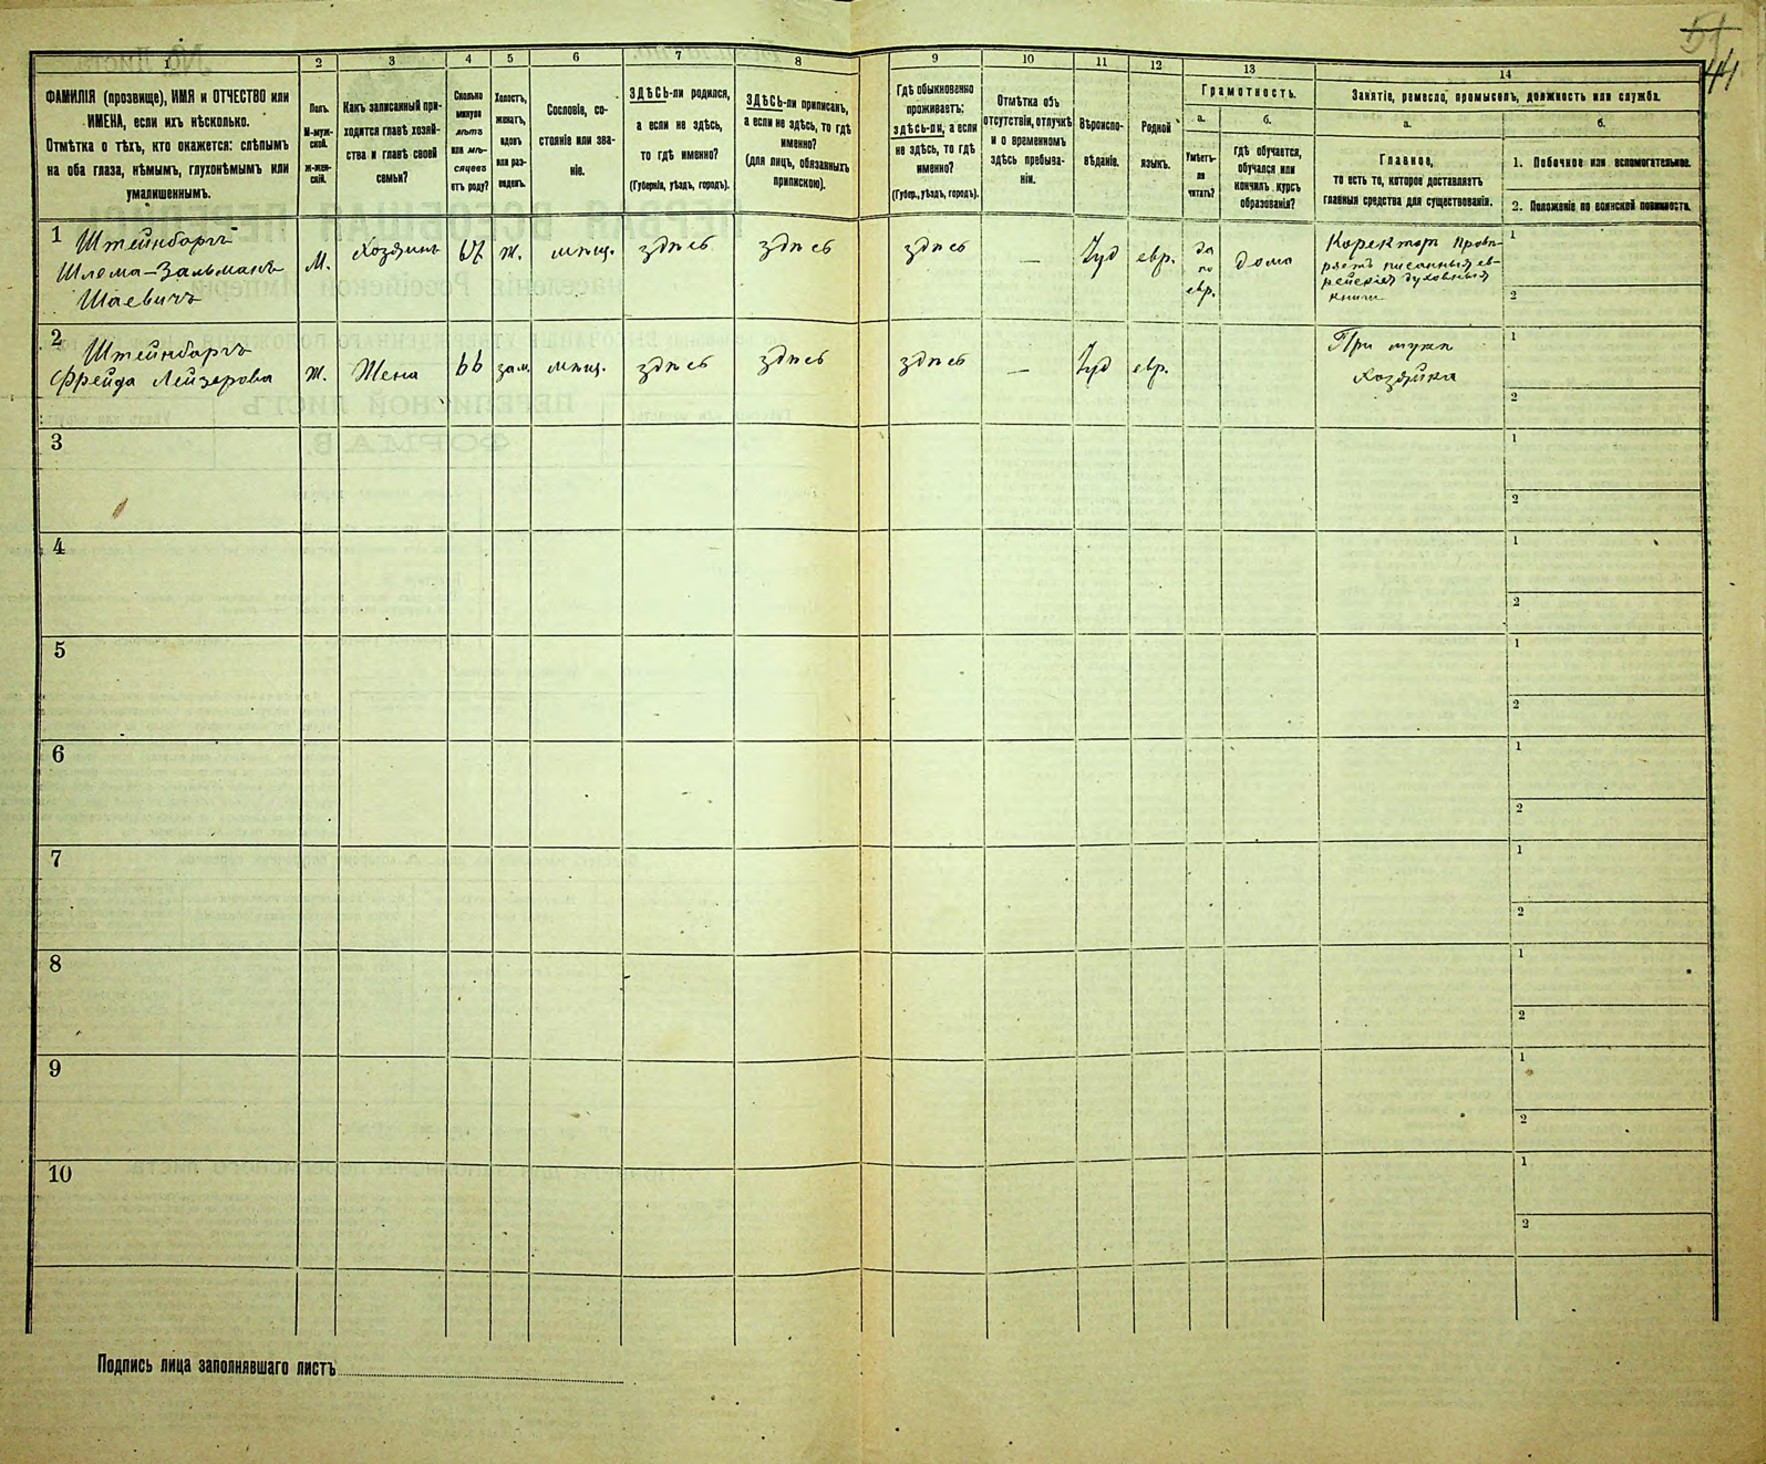 51
44
1
2
3
4
5
6
7
8
9
10
11
12
13
14
ФАМИЛІЯ (прозвище), ИМЯ и ОТЧЕСТВО или
ИМЕНА, если ихъ нѣсколько.
Отмѣтка о тѣхъ, кто окажется: слѣпымъ
на оба глаза, нѣмымъ, глухонѣмымъ или
умалишеннымъ.
Полъ.
М-муж-
ской.
Ж-жен-
скій.
Какъ записанный при-
ходится главѣ хозяй-
ства и главѣ своей
семьи?
Сколько
минуло
лѣтъ
или мѣ-
сяцевъ
отъ роду?
Холостъ,
женатъ,
вдовъ
или раз-
веденъ.
Сословіе, со-
стояніе или зва-
ніе.
ЗДѢСЬ-ли родился,
а если не здѣсь,
то гдѣ именно?
(Губернія, уѣздъ, городъ).
ЗДѢСЬ-ли приписанъ,
а если не здѣсь, то гдѣ
именно?
(для лицъ, обязанныхъ
припискою).
Гдѣ обыкновенно
проживаетъ:
здѣсь-ли, а если
не здѣсь, то гдѣ
именно?
(Губер., уѣздъ, городъ).
Отмѣтка объ
отсутствіи, отлучкѣ
и о временномъ
здѣсь пребыва-
ніи.
Вѣроиспо-
вѣданіе.
Родной
языкъ.
Грамотность.
а.
Умѣетъ-
ли
читать?
б.
гдѣ обучается,
обучался или
кончилъ курсъ
образованія?
Занятіе, ремесло, промыселъ, должность или служба.
а.
Главное,
то есть то, которое доставляетъ
главныя средства для существованія.
б.
1. Побочное или вспомогательное.
2. Положеніе по воинской повинности.
1
Штейнборгъ
Шлома-Зальманъ
Шаевичъ
М.
Хозяинъ
67
Ж.
мѣщ.
здѣсь
здѣсь
здѣсь
—
Іуд
евр.
да
по
евр.
дома
Коректор провѣ-
ряетъ писанныя ев-
рейскія духовныя
книги
1
2
2
Штейнборгъ
Фрейда Лейзерова
Ж.
Жена
66
зам.
мѣщ.
здѣсь
здѣсь
здѣсь
—
Іуд
евр.
При мужѣ
хозяйка
1
2
3
1
2
4
1
2
5
1
2
6
1
2
7
1
2
8
1
2
9
1
2
10
1
2
Подпись лица заполнявшаго листъ